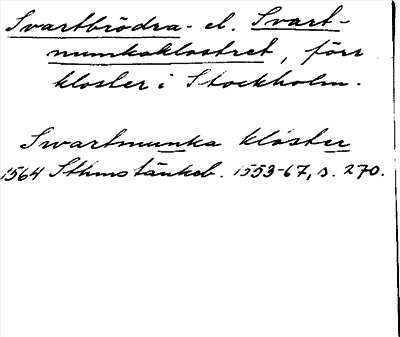 Svartbrödra- el. Svart-
munkaklostret, förr
kloster i Stockholm.
Swartmunka kloster
1564 Sthms tänkeb. 1553-67, s. 270.